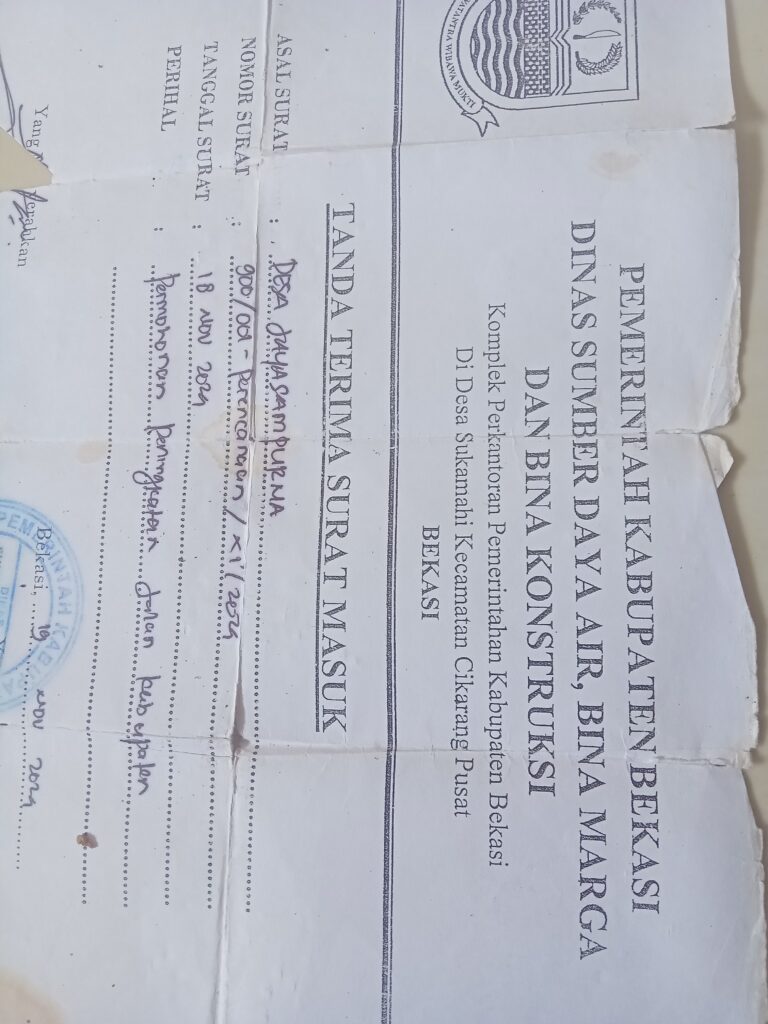 PEMERINTAH KABUPATEN BEKASI
DINAS SUMBER DAYA AIR, BINA MARGA
DAN BINA KONSTRUKSI
Komplek Perkantoran Pemerintahan Kabupaten Bekasi
Di Desa Sukamahi Kecamatan Cikarang Pusat
BEKASI
WIBAWA MUKTI
TANDA TERIMA SURAT MASUK
ASAL SURAT : DESA JAYASAMPURNA
NOMOR SURAT : 900/001 - Perencanaan / XI / 2024
TANGGAL SURAT : 18 NOV 2024
PERIHAL : Permohonan Peningkatan Jalan kabupaten
Bekasi, 19 NOV 2024
Yang
PEMERINTAH KAB